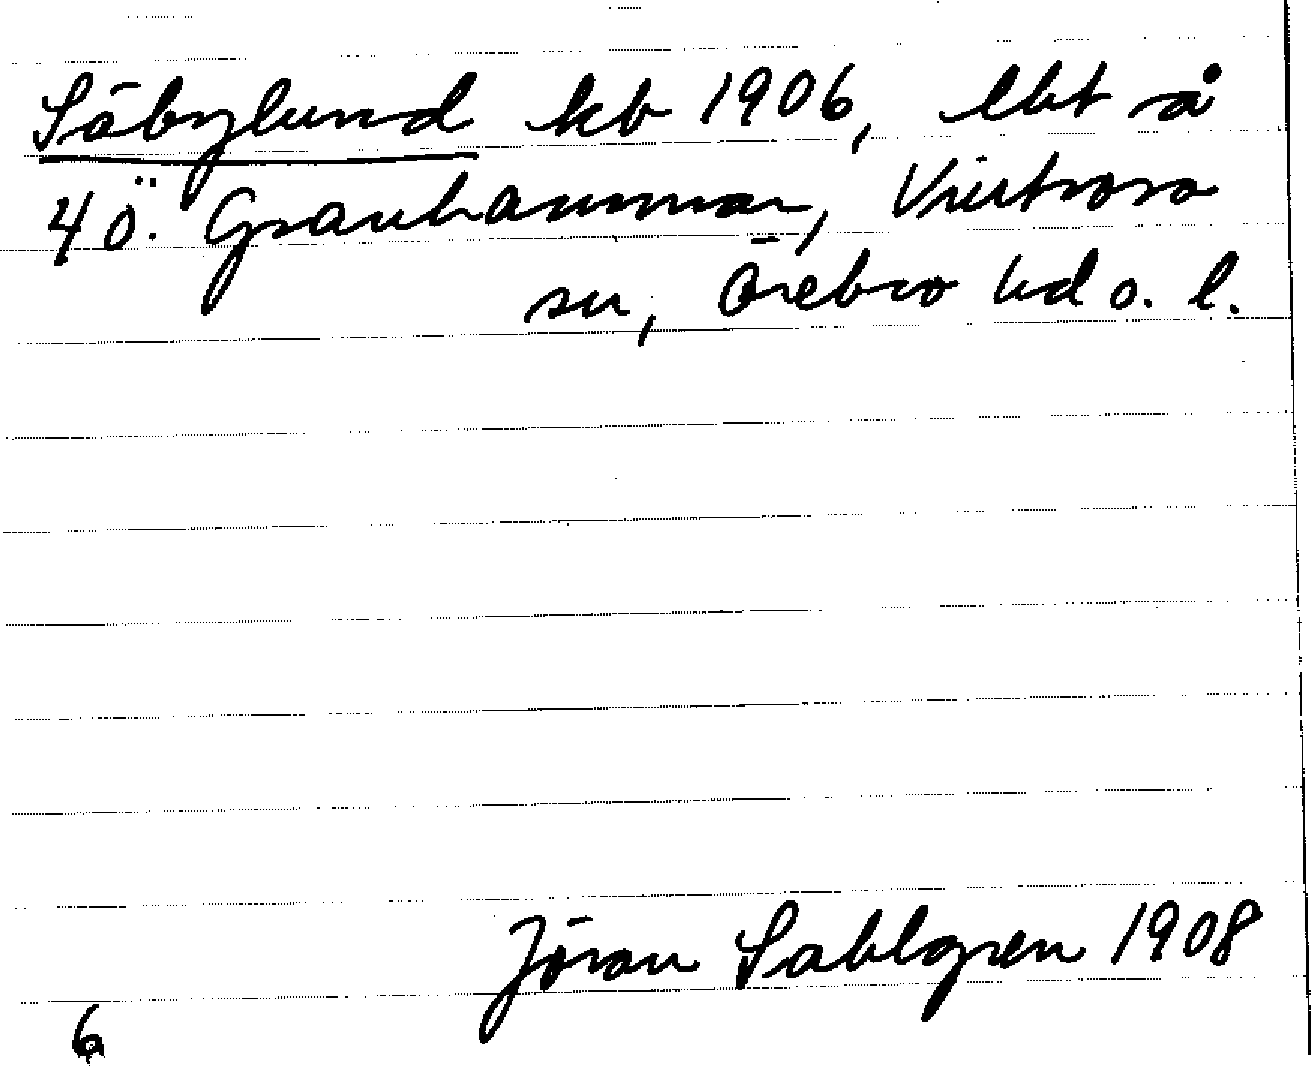 Säbylund kb 1906, lbt å
40. Granhammar, Vintrosa
sn, Örebro hd o. l.
Jöran Sahlgren 1908
6